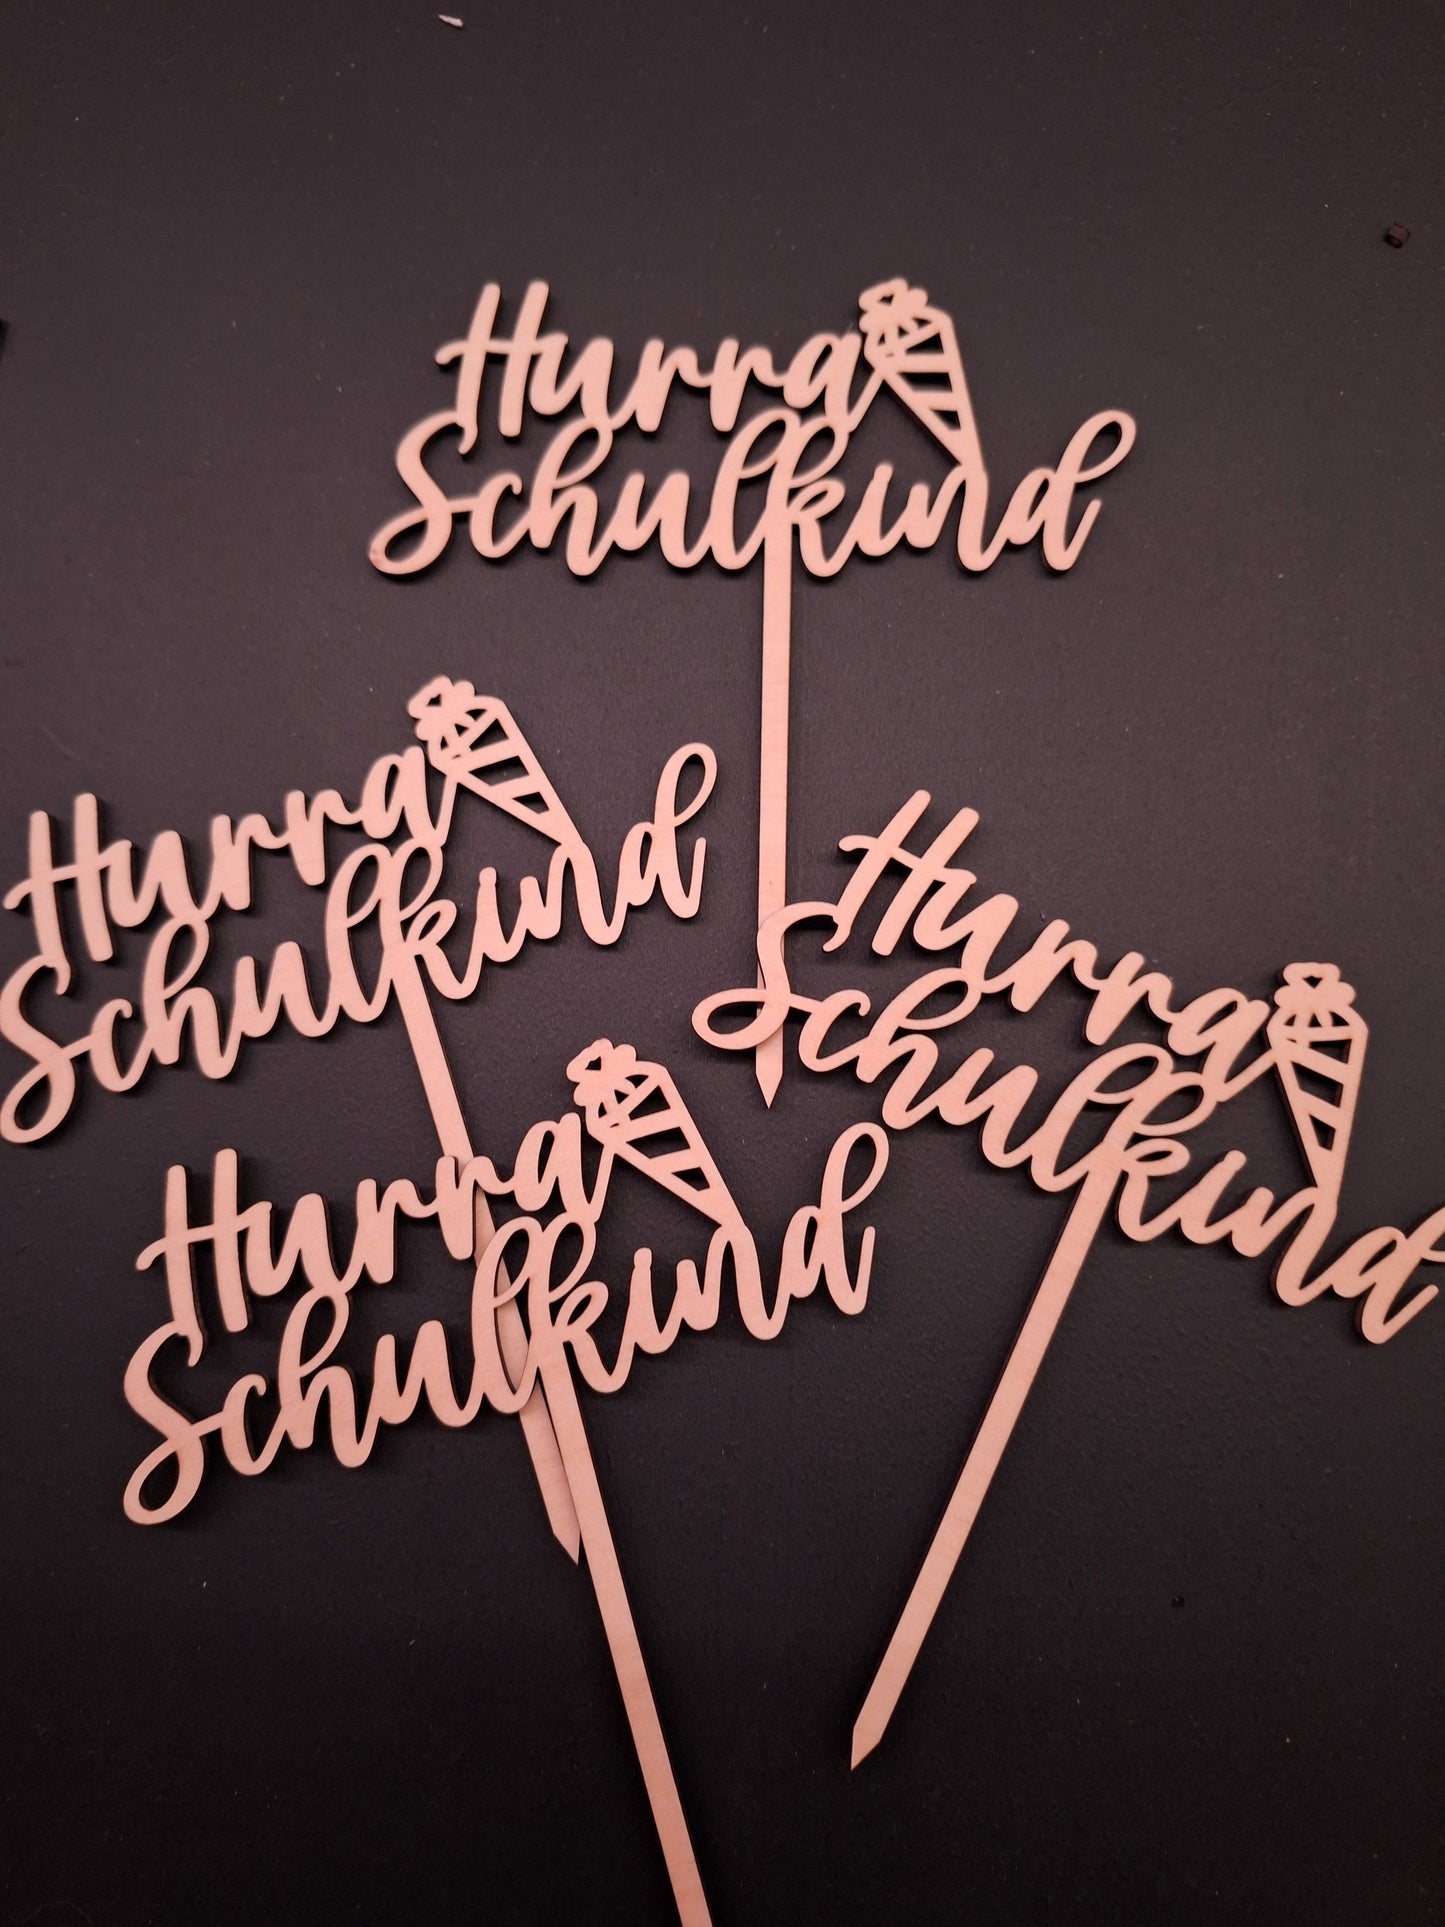 Hurra
Schulkind
Hurra
Schulkind
Hurra
Schulkind
Hurra
Schulkind